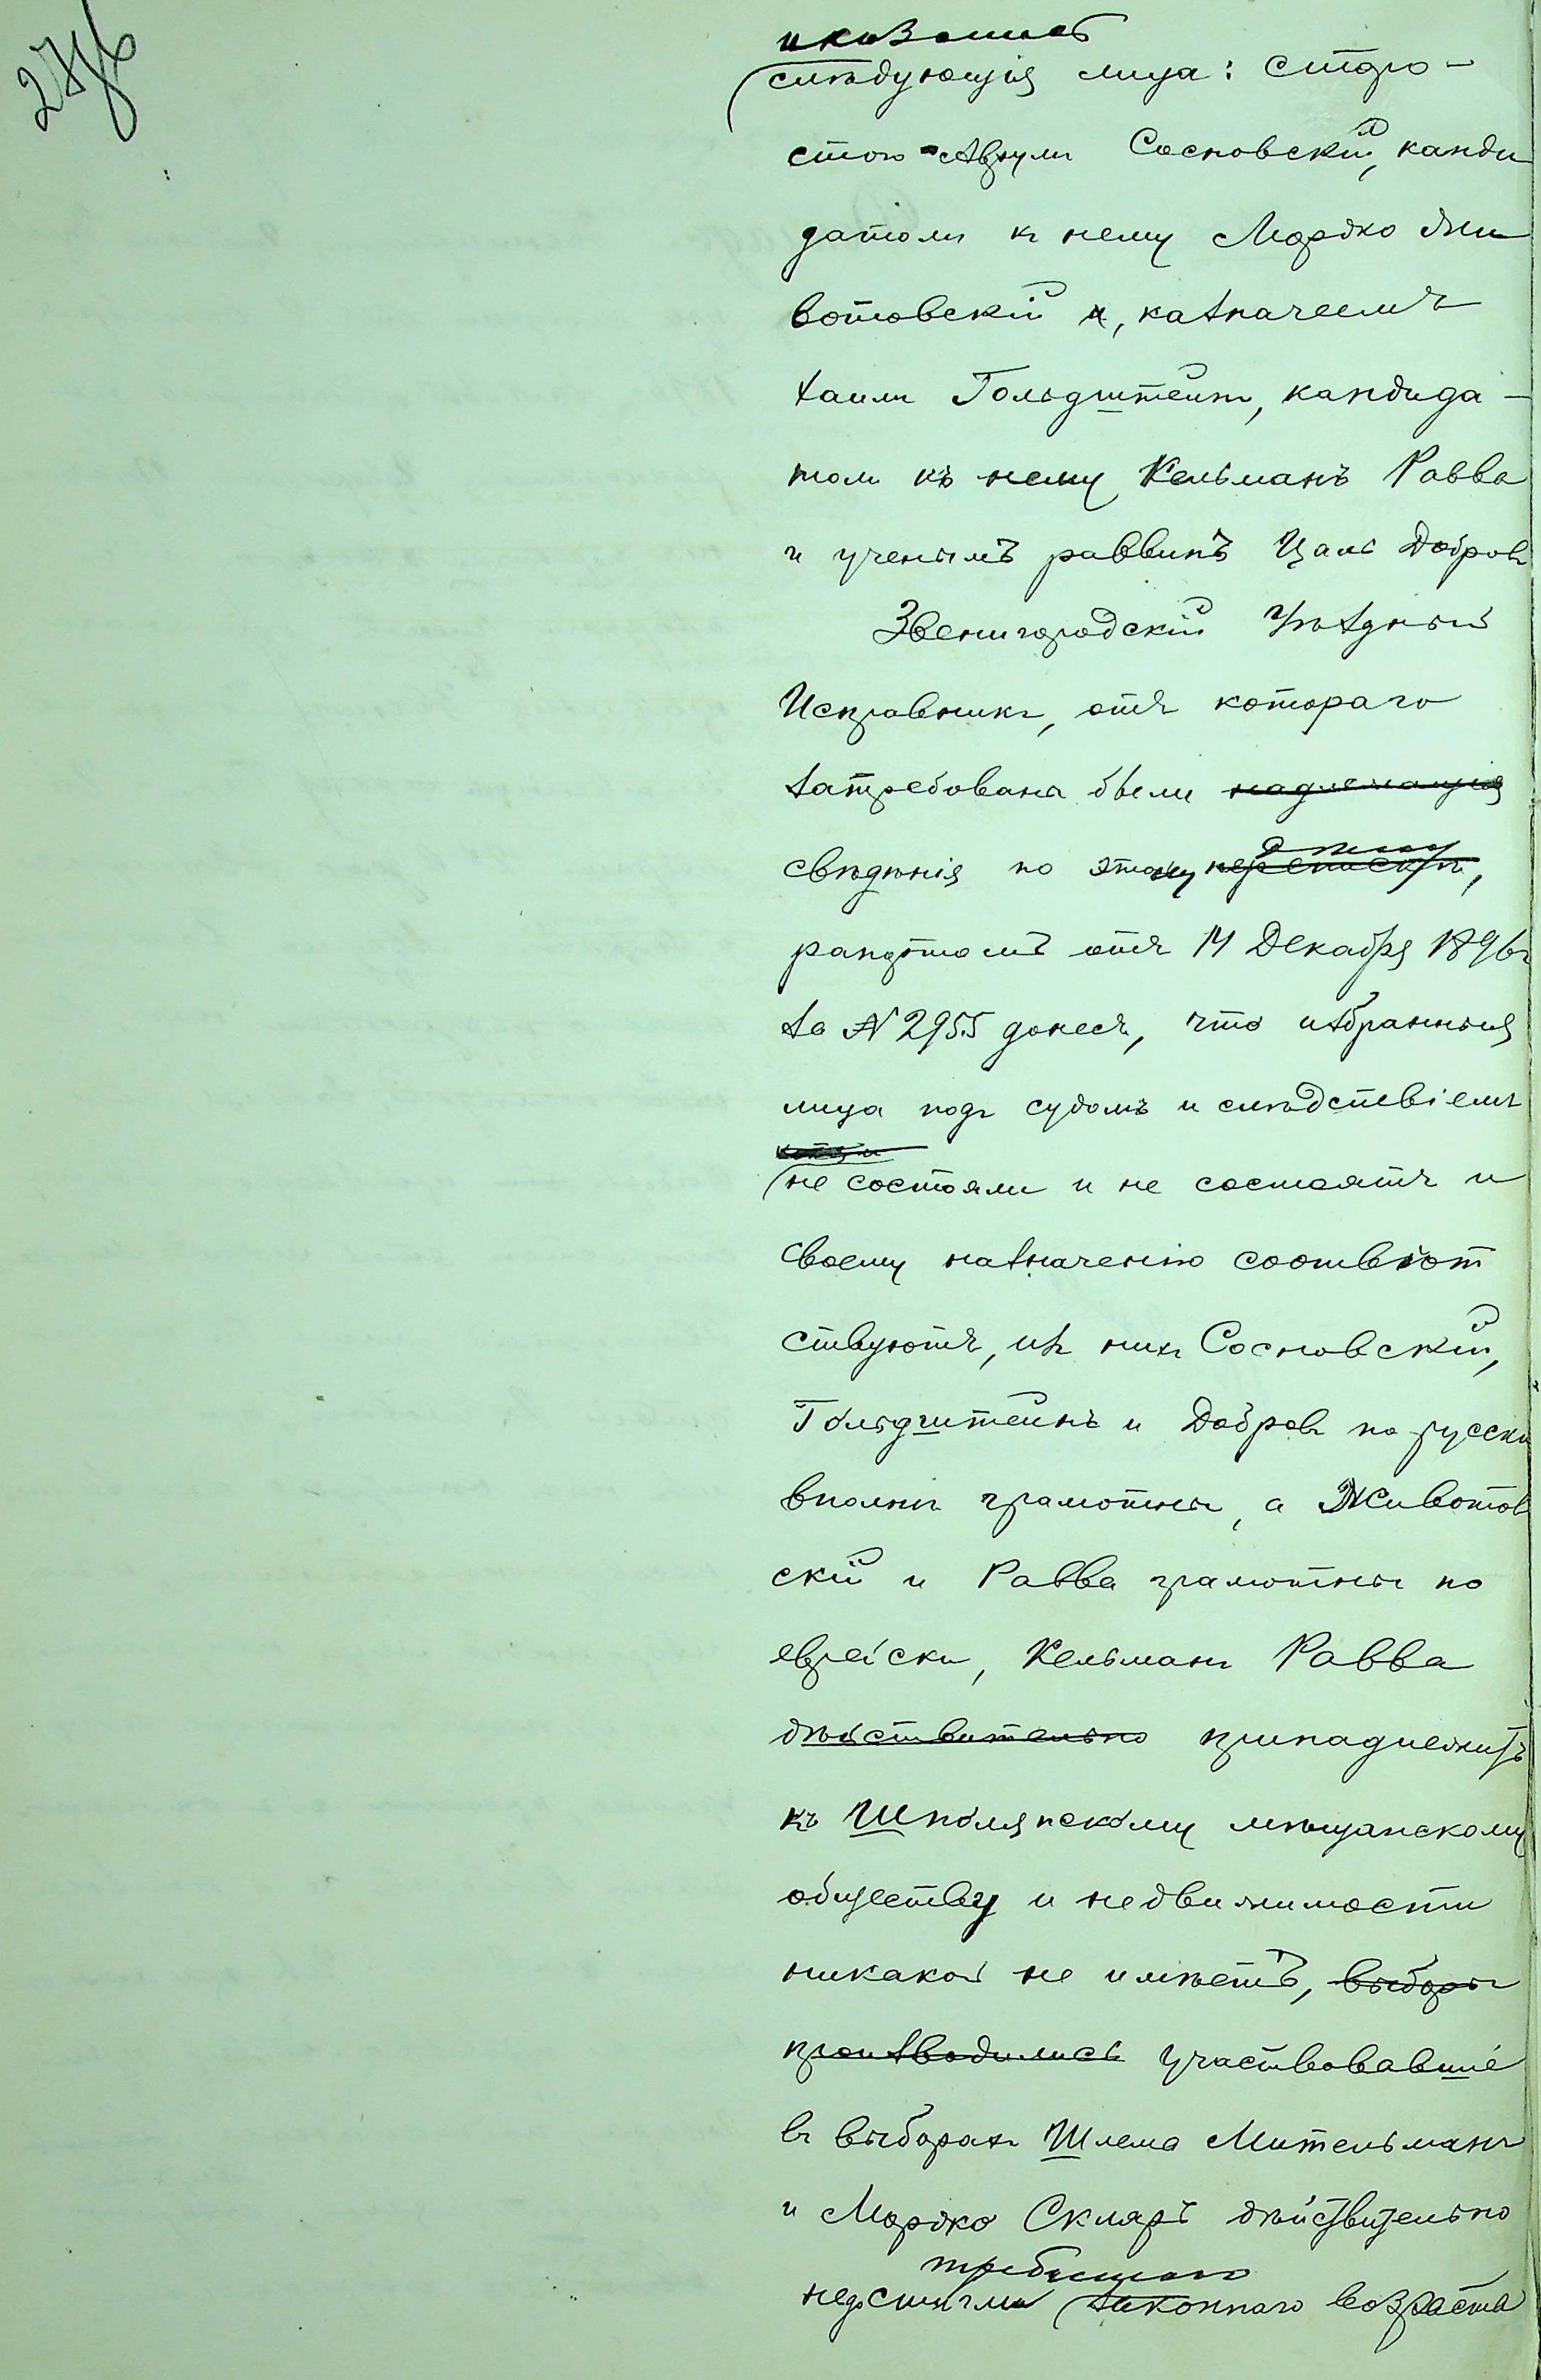 оказались
слѣдующія лица: старо-
стою Аврумъ Сосновскій, канди
датомъ къ нему Мордко Жи
вотовскій, казначеемъ
Хаимъ Гольдштейнъ, кандида-
томъ къ нему Кельманъ Равва
и ученымъ раввинъ Цаль Добровъ
Звенигородскій Уѣздный
Исправникъ, отъ котораго
затребованы были надлежащія
свѣдѣнія по этому перепискѣ,
рапортомъ отъ 14 Декабря 1896 г
за № 2955 донесъ, что избранныя
лица подъ судомъ и слѣдствіемъ
не состояли и не состоятъ и
своему назначенію соотвѣт
ствуютъ, изъ нихъ Сосновскій,
Гольдштейнъ и Добровъ по русски
вполнѣ грамотны, а Животов
скій и Равва грамотны по
еврейски, Кельманъ Равва
дѣйствительно принадлежитъ
къ Шполянскому мѣщанскому
обществу и недвижимости
никакой не имѣетъ, выборы
производились участвовавшіе
въ выборахъ Шлема Мительманъ
и Мордко Скляръ дѣйствительно
требуемаго
недостигли законнаго возраста